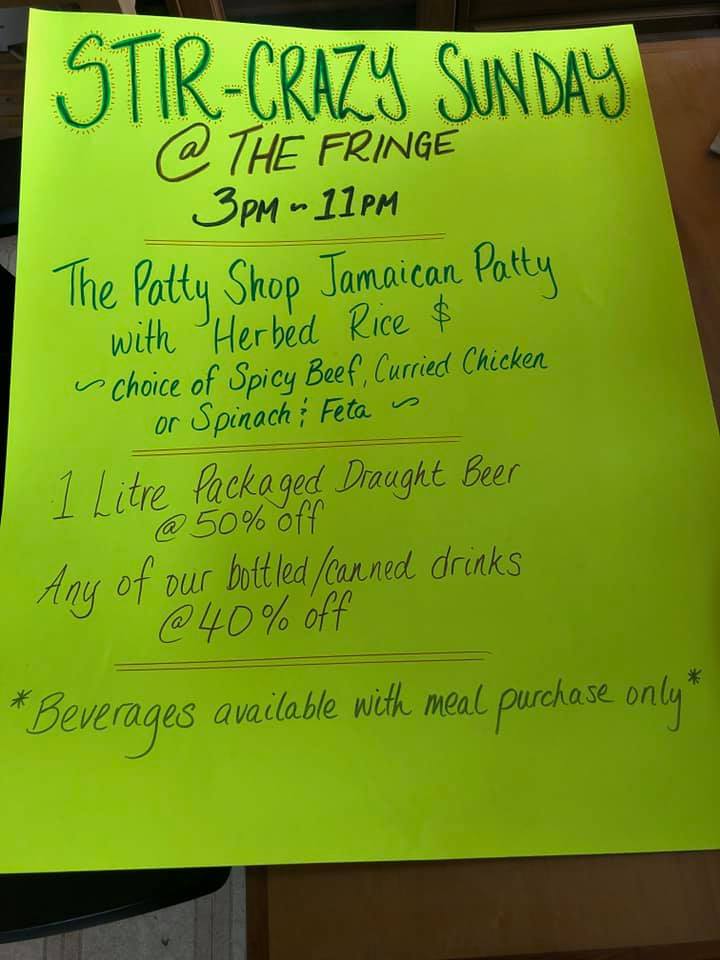 STIR-CRAZY SUNDAY
@ THE FRINGE
3PM ~ 11PM
The Patty Shop Jamaican Patty
with Herbed Rice $
~ choice of Spicy Beef, Curried Chicken
or Spinach & Feta ~
1 Litre Packaged Draught Beer
@ 50% off
Any of our bottled/canned drinks
@ 40% off
*Beverages available with meal purchase only*